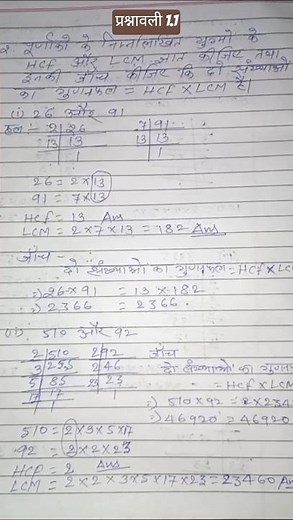 प्रश्नावली 1.1
2. पूर्णांकों के निम्नलिखित युग्मों के
HCF और LCM ज्ञात कीजिए तथा
इनकी जाँच कीजिए कि दो संख्याओं
का गुणनफल = HCF × LCM है।
(i) 26 और 91
हल :- 2 | 26    7 | 91
13 | 13    13 | 13
1    1
26 = 2×13
91 = 7×13
HCF = 13 Ans
LCM = 2×7×13 = 182 Ans
जाँच -
दो संख्याओं का गुणनफल = HCF × LCM
=) 26 × 91 = 13 × 182
=) 2366 = 2366.
(ii) 510 और 92
2 | 510    2 | 92    जाँच
3 | 255    2 | 46    दो संख्याओं का गुणन
5 | 85    23 | 23    = HCF × LCM
17 | 17    1    =) 510 × 92 = 2 × 234
1    =) 46920 = 46920
510 = 2×3×5×17
92 = 2×2×23
HCF = 2 Ans
LCM = 2×2×3×5×17×23 = 23460 An